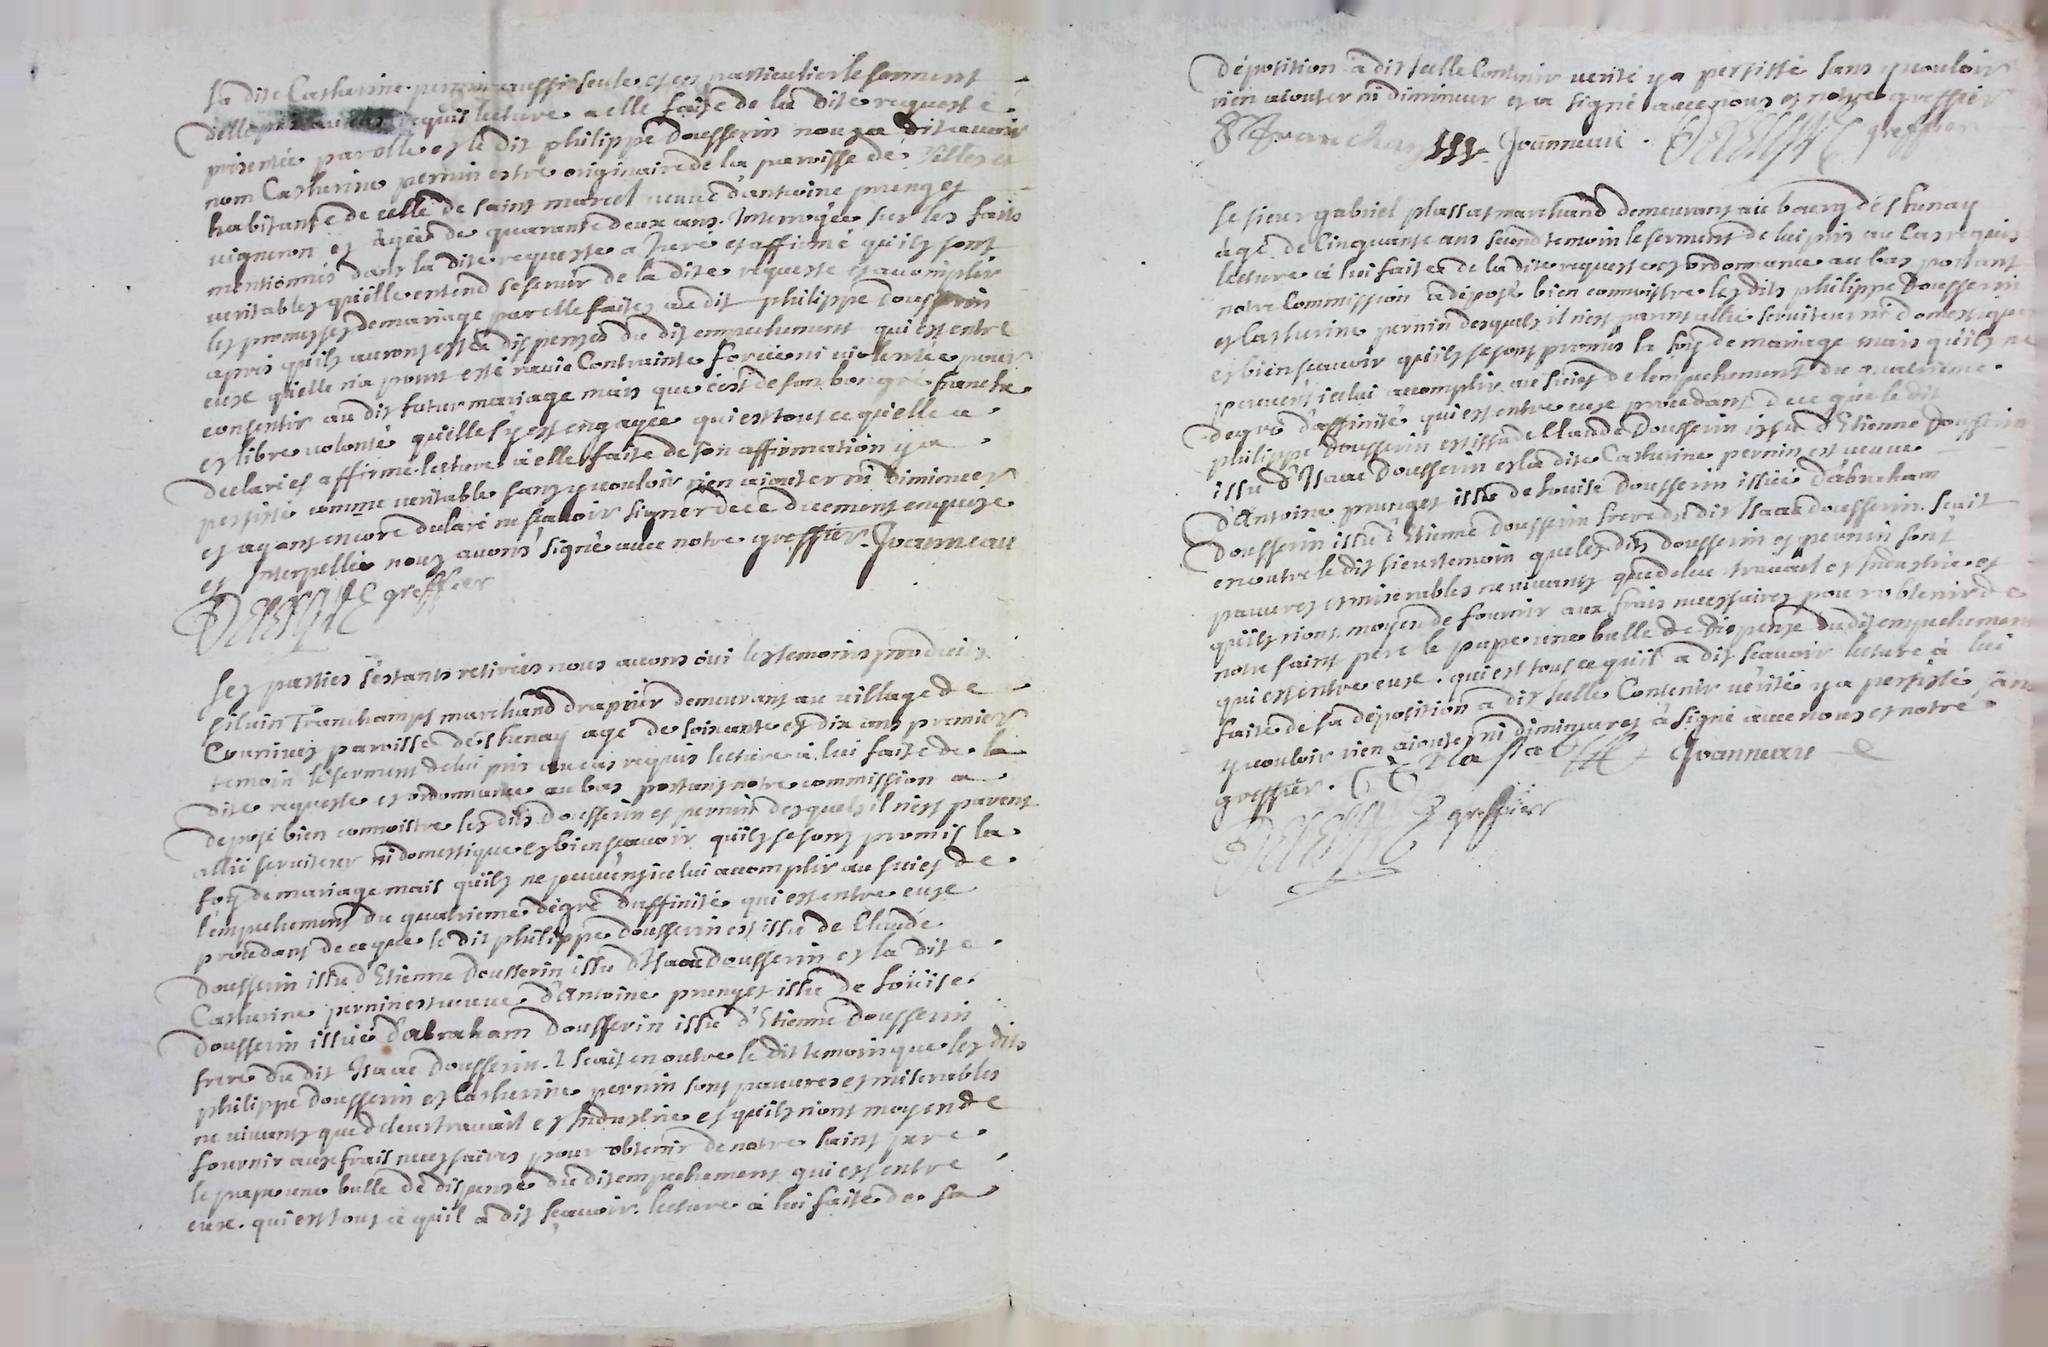 La dite Catherine pernin aussi seule et en particulier le serment
d'elle pris au cas requis lecture a elle faite de la dite requeste
presentée par elle et le dit philippe Dousserin nous a dit avoir
nom Catherine pernin estre originaire de la paroisse de Velles et
habitante de celle de saint marcel veuve d'antoine prunget
vigneron et âgée de quarante deux ans. Interrogée sur les faits
mentionnés dans la dite requeste a Juré et affirmé qu'ils sont
veritables qu'elle entend se servir de la dite requeste et accomplir
les promesses de mariage par elle faites au dit philippe Dousserin
aprés qu'ils auront esté dispensés du dit empechement qui est entre
eux qu'elle n'a point esté ravie Contrainte forcée ni violentée pour
consentir au dit futur mariage mais que c'est de son bon gré franche
et libre volonté qu'elle s'y est engagée qui est tout ce qu'elle a
declaré et affirmé lecture à elle faite de son affirmation y a
persisté comme veritable sans y vouloir rien aiouter ni diminuer
et ayant encore declaré ne sçavoir signer de ce deument enquise
et Interpellée nous avons signé avec notre greffier. Joanneau
greffier
Les parties s'estants retirées nous avons oui les temoins produits.
silvin Tranchamps marchand drapier demeurant au village de
paroisse de sthenay agé de soixante et dix ans premier
temoin le serment de lui pris au cas requis lecture à lui faite de la
dite requeste et ordonnance au bas portant notre commission a
deposé bien connoistre les dits dousserin et pernin desquels il n'est parent
allié serviteur ni domestique et bien sçavoir qu'ils se sont promis la
foy de mariage mais qu'ils ne peuvent icelui accomplir au suiet de
l'empechement du quatrieme degré d'affinité qui est entre eux
procedant de ce que le dit philippe dousserin est issu de Claude
Dousserin issu d'Etienne Dousserin issu d'Isaac Dousserin et la dite
Catherine pernin est veuve d'Antoine prunget issu de Loüise
Dousserin issüe d'abraham Dousserin issu d'Etienne Dousserin
frere du dit Isaac Dousserin. Sçait en outre le dit temoin que les dits
philippe Dousserin et Catherine pernin sont pauvres et miserables
ne vivants que de leur travail et Industrie et qu'ils n'ont moyen de
fournir aux frais necessaires pour obtenir de notre saint pere
le pape une bulle de dispense du dit empechement qui est entre
eux. qui est tout ce qu'il a dit sçavoir. lecture à lui faite de sa
déposition a dit Icelle Contenir verité y a persisté sans y vouloir
rien aiouter ni diminuer et a signé avec nous et notre greffier
Joanneau. greffier
Le sieur gabriel plassat marchand demeurant au bourg de sthenay
âgé de Cinquante ans second temoin le serment de lui pris au Cas requis
lecture à lui faite de la dite requeste et ordonnance au bas portant
notre Commission a déposé bien connoistre les dits philippe Dousserin
et Catherine pernin desquels il n'est parent allié serviteur ni domestique
et bien sçavoir qu'ils se sont promis la foy de mariage mais qu'ils ne
peuvent icelui accomplir au suiet de l'empechement du quatrieme
degré d'affinité qui est entre eux procedant de ce que le dit
philippe Dousserin est issu de Claude Dousserin issu d'Etienne Dousserin
issu d'Isaac Dousserin et la dite Catherine pernin est veuve
d'Antoine prunget issu de Louise Dousserin issüe d'abraham
Dousserin issu d'Etienne Dousserin frere du dit Isaac dousserin. Scait
en outre le dit sieur temoin que les dits dousserin et pernin sont
pauvres et miserables ne vivants que de leur travail et Industrie et
qu'ils n'ont moyen de fournir aux frais necessaires pour obtenir de
notre saint pere le pape une bulle de dispense du dit empechement
qui est entre eux. qui est tout ce qu'il a dit sçavoir lecture à lui
faite de sa déposition a dit Icelle Contenir vérité y a persisté sans
y vouloir rien aiouter ni diminuer et a signé avec nous et notre
greffier. Joanneau
greffier